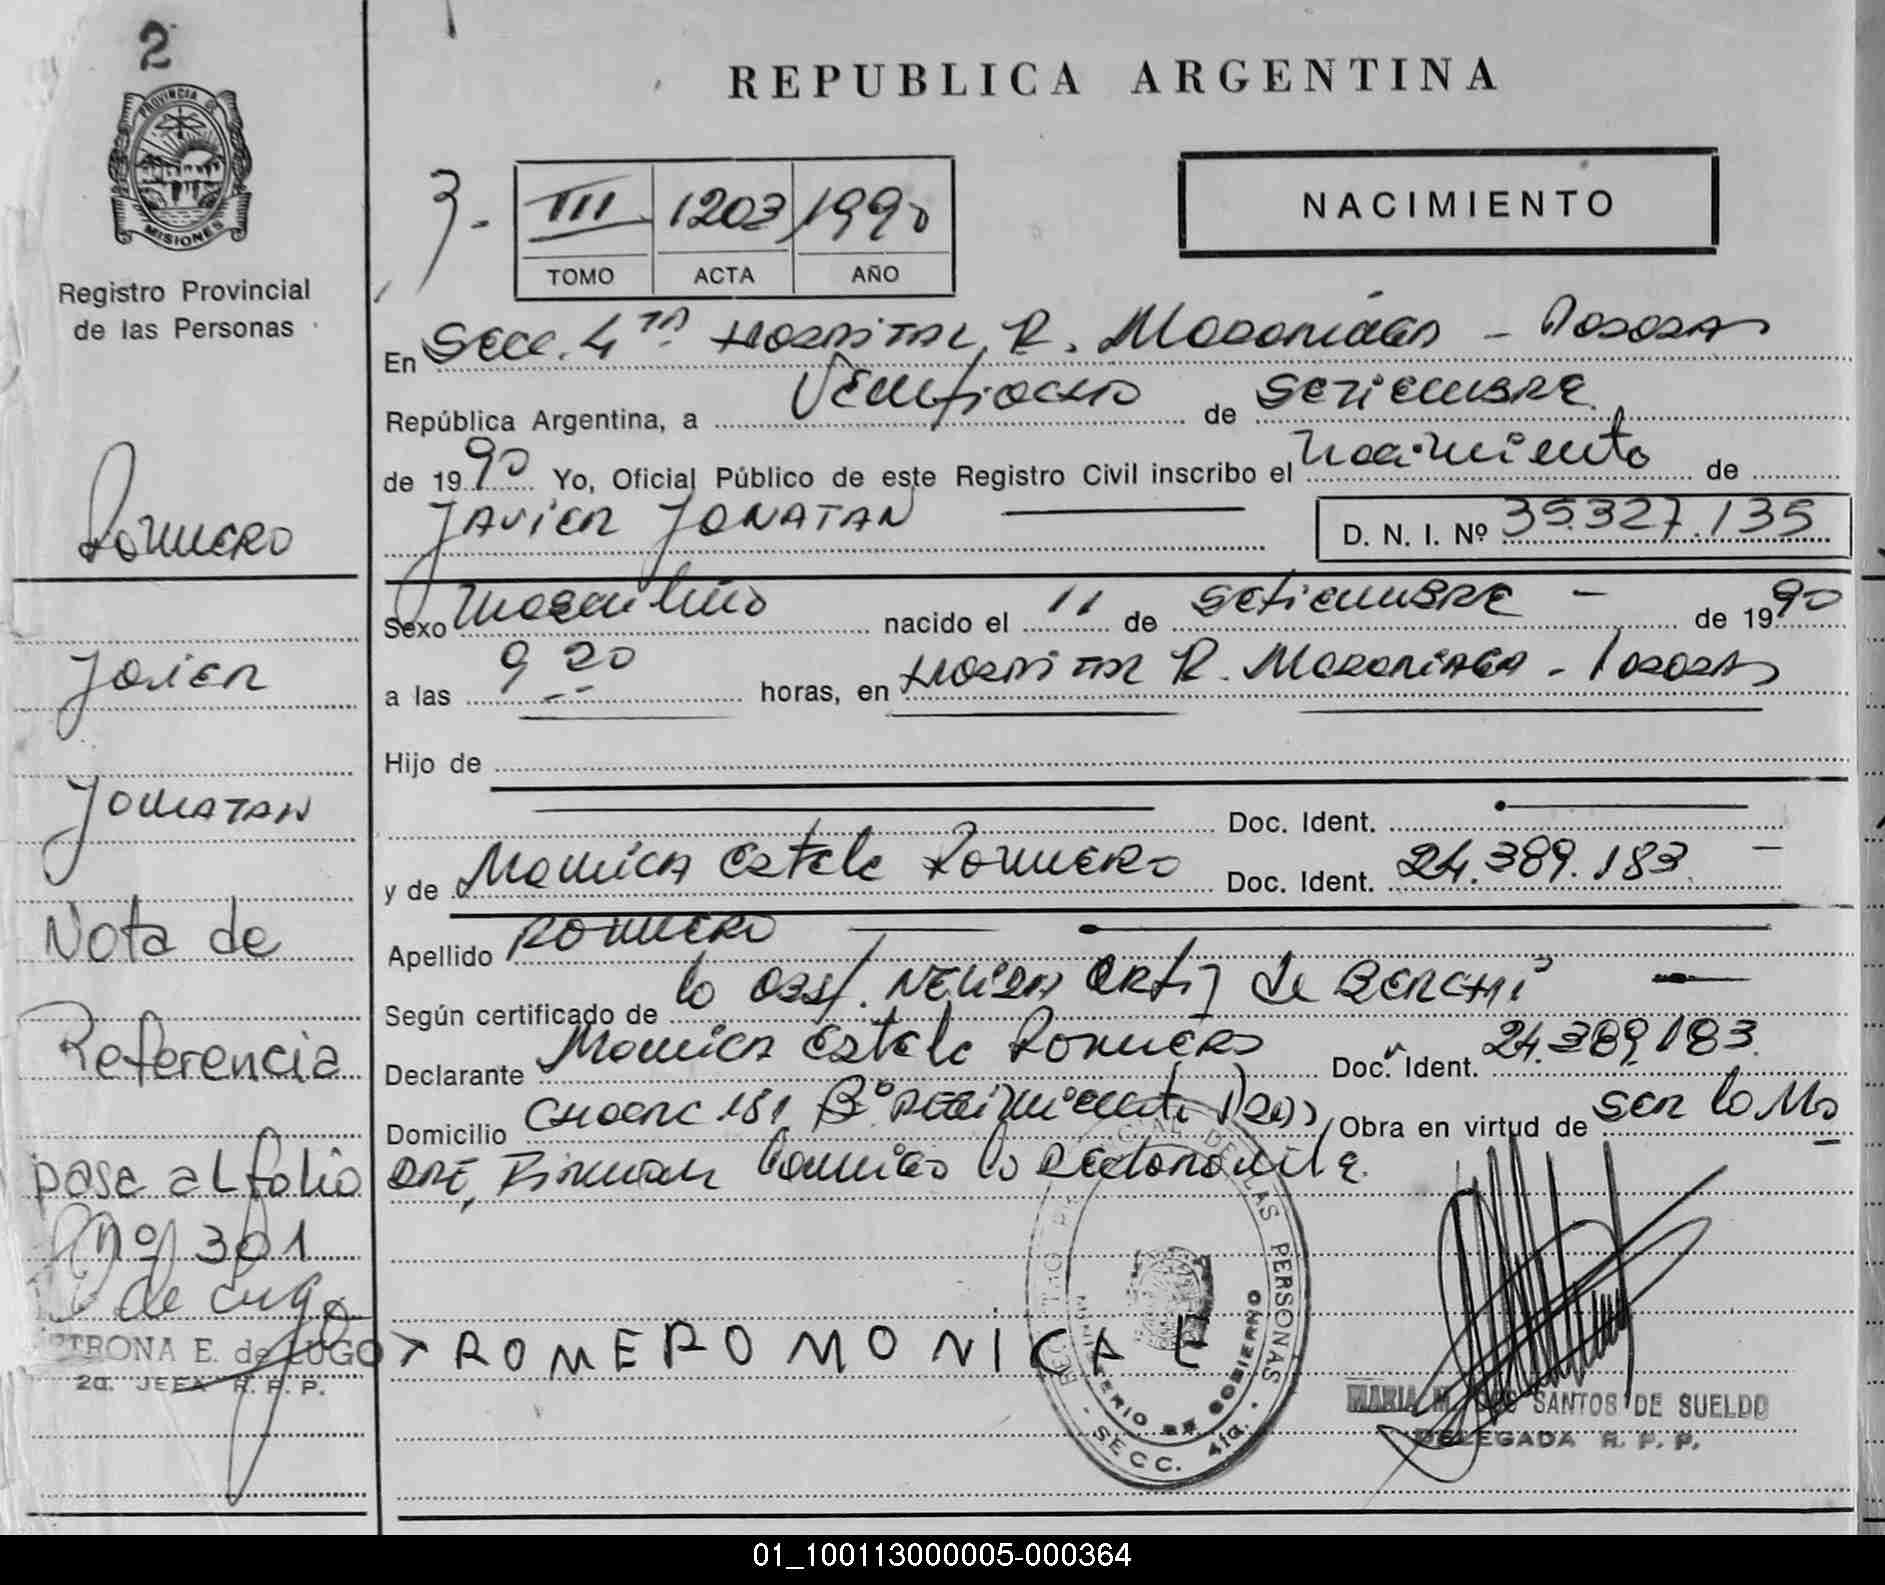 2
PROVINCIA DE
MISIONES
Registro Provincial
de las Personas
Romero
Javier
Jonatan
Nota de
Referencia
pase al folio
Nº 301
de Lugo
PETRONA E. de LUGO
2a. JEFA R. P. P.
REPUBLICA ARGENTINA
NACIMIENTO
3.-
III 1203 1990
TOMO ACTA AÑO
En Secc. 4ta Hospital R. Madariaga - Posadas
República Argentina, a Veintiocho de Setiembre
de 1990 Yo, Oficial Público de este Registro Civil inscribo el nacimiento de
Javier Jonatan
D. N. I. Nº 35.327.135
Sexo Masculino nacido el 11 de Setiembre - de 1990
a las 9 20 horas, en Hospital R. Madariaga - Posadas
Hijo de
Doc. Ident.
y de Monica Estela Romero Doc. Ident. 24.389.183 -
Apellido Romero
Según certificado de la Obst. Nelida Ortiz de
Declarante Monica Estela Romero Doc. Ident. 24.389.183
Domicilio 181 Bº Regimiento Obra en virtud de ser la Ma
dre, Firman la
ROMERO MONICA E
REGISTRO PROVINCIAL DE LAS PERSONAS
MINISTERIO DE GOBIERNO
- SECC. 4ta. -
MARIA M. DOS SANTOS DE SUELDO
DELEGADA R. P. P.
01_100113000005-000364